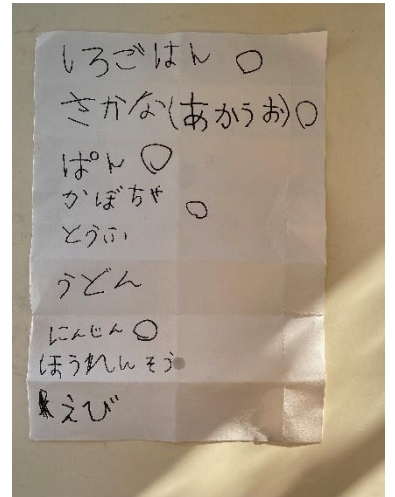 しろごはん ○
さかな(あかうお)○
ぱん ○
かぼちゃ ○
とうふ
うどん
にんじん ○
ほうれんそう
えび